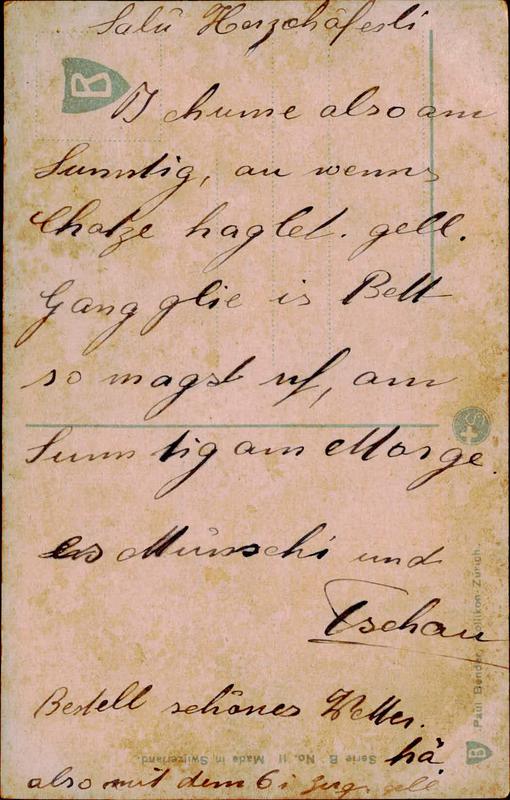 Salü Herzchäferli
B
I chume also am
Sunntig, au wenns
Chatze haglet. gell.
Gang glie is Bett
so magst uf, am
Sunntig am Morge.
es Münschi und
Tschau
Bestell schönes Wetter.
hä
also mit dem 6i Zug gell
Serie B No. 11 Made in Switzerland.
Paul Bender, Zollikon-Zürich.
B